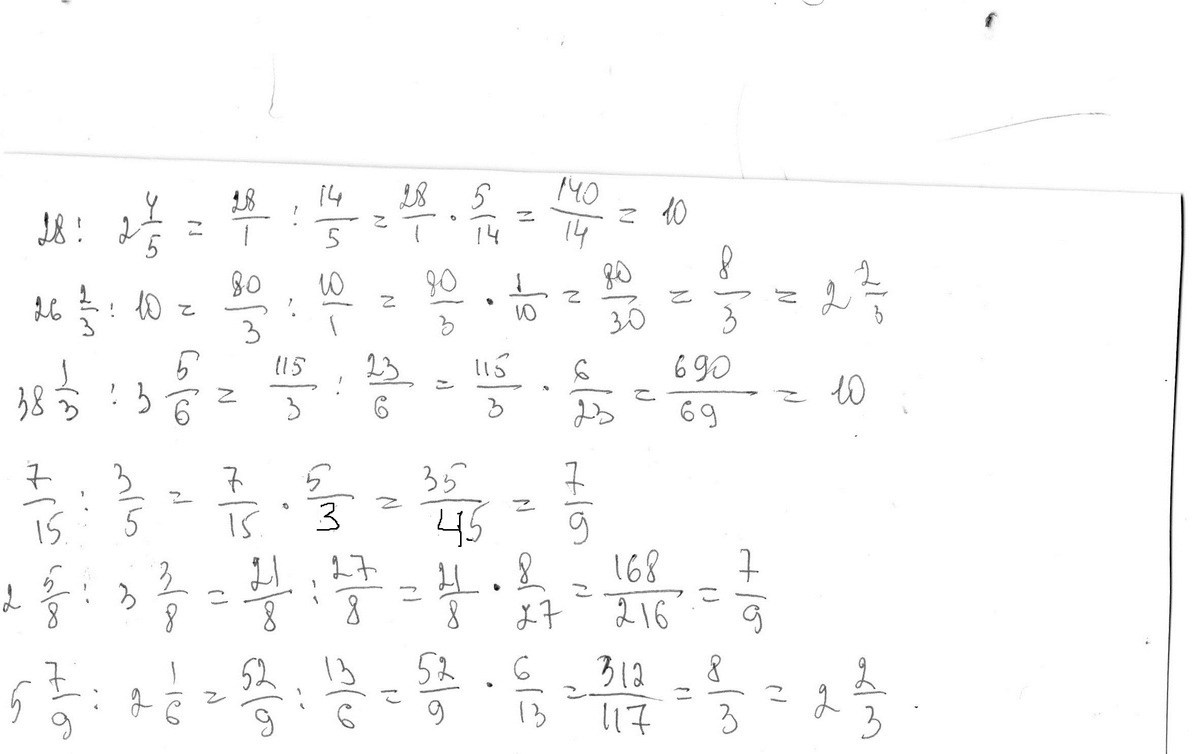 28 : 2 4/5 = 28/1 : 14/5 = 28/1 · 5/14 = 140/14 = 10
26 2/3 : 10 = 80/3 : 10/1 = 80/3 · 1/10 = 80/30 = 8/3 = 2 2/3
38 1/3 : 3 5/6 = 115/3 : 23/6 = 115/3 · 6/23 = 690/69 = 10
7/15 : 3/5 = 7/15 · 5/3 = 35/45 = 7/9
2 5/8 : 3 3/8 = 21/8 : 27/8 = 21/8 · 8/27 = 168/216 = 7/9
5 7/9 : 2 1/6 = 52/9 : 13/6 = 52/9 · 6/13 = 312/117 = 8/3 = 2 2/3 .